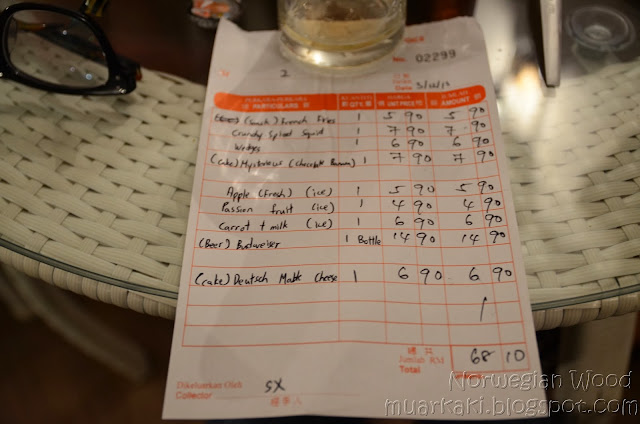 No. 02299
2
Date 3/12/13
PARTICULARS QTY. UNIT PRICE AMOUNT
(Snack) French Fries 1 5 90 5 90
Crunchy Splash Squid 1 7 90 7 90
Wedges 1 6 90 6 90
(Cake) Mysterious (Chocolate Banana) 1 7 90 7 90
Apple (Fresh) (ice) 1 5 90 5 90
Passion fruit (ice) 1 4 90 4 90
Carrot + milk (ice) 1 6 90 6 90
(Beer) Budweiser 1 Bottle 14 90 14 90
(Cake) Deutsch Cheese 1 6 90 6 90
Jumlah RM
Total 68 10
Dikeluarkan Oleh
Collector SX
經手人
Norwegian Wood
muarkaki.blogspot.com